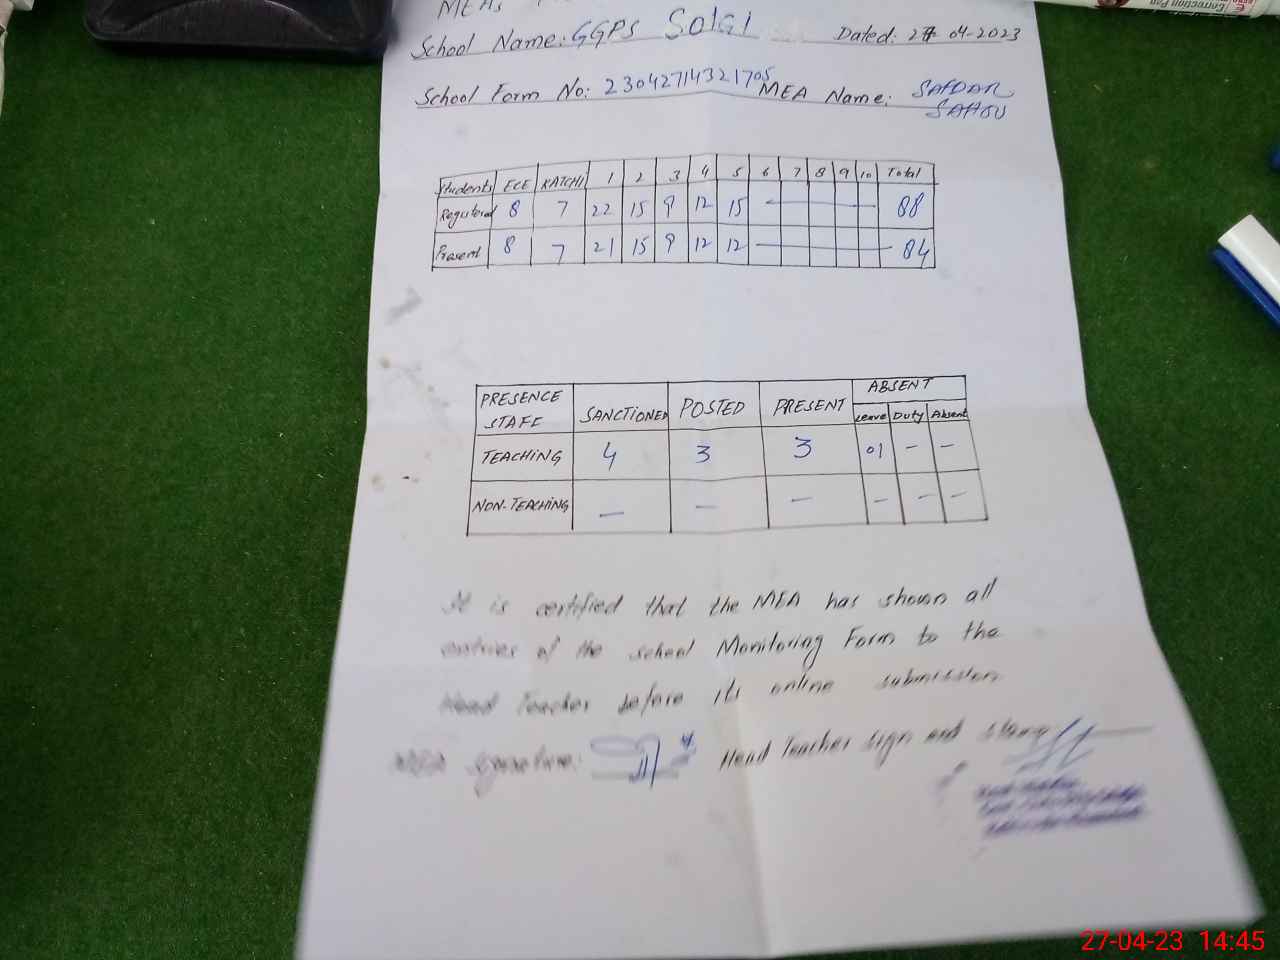 MEAs
School Name: GGPS Solgi Dated: 27 04-2023
School Form No: 23042714321705 MEA Name: SAFDAR
SAHOU
Students ECE KATCHI 1 2 3 4 5 6 7 8 9 10 Total
Registered 8 7 22 15 9 12 15 — 88
Present 8 7 21 15 9 12 12 — 84
PRESENCE STAFF SANCTIONED POSTED PRESENT ABSENT
Leave Duty Absent
TEACHING 4 3 3 01 — —
NON-TEACHING — — — — — —
It is certified that the MEA has shown all
entries of the school Monitoring Form to the
Head Teacher before its online submission
MEA Signature: Head Teacher sign and stamp
Correction Pen
27-04-23 14:45